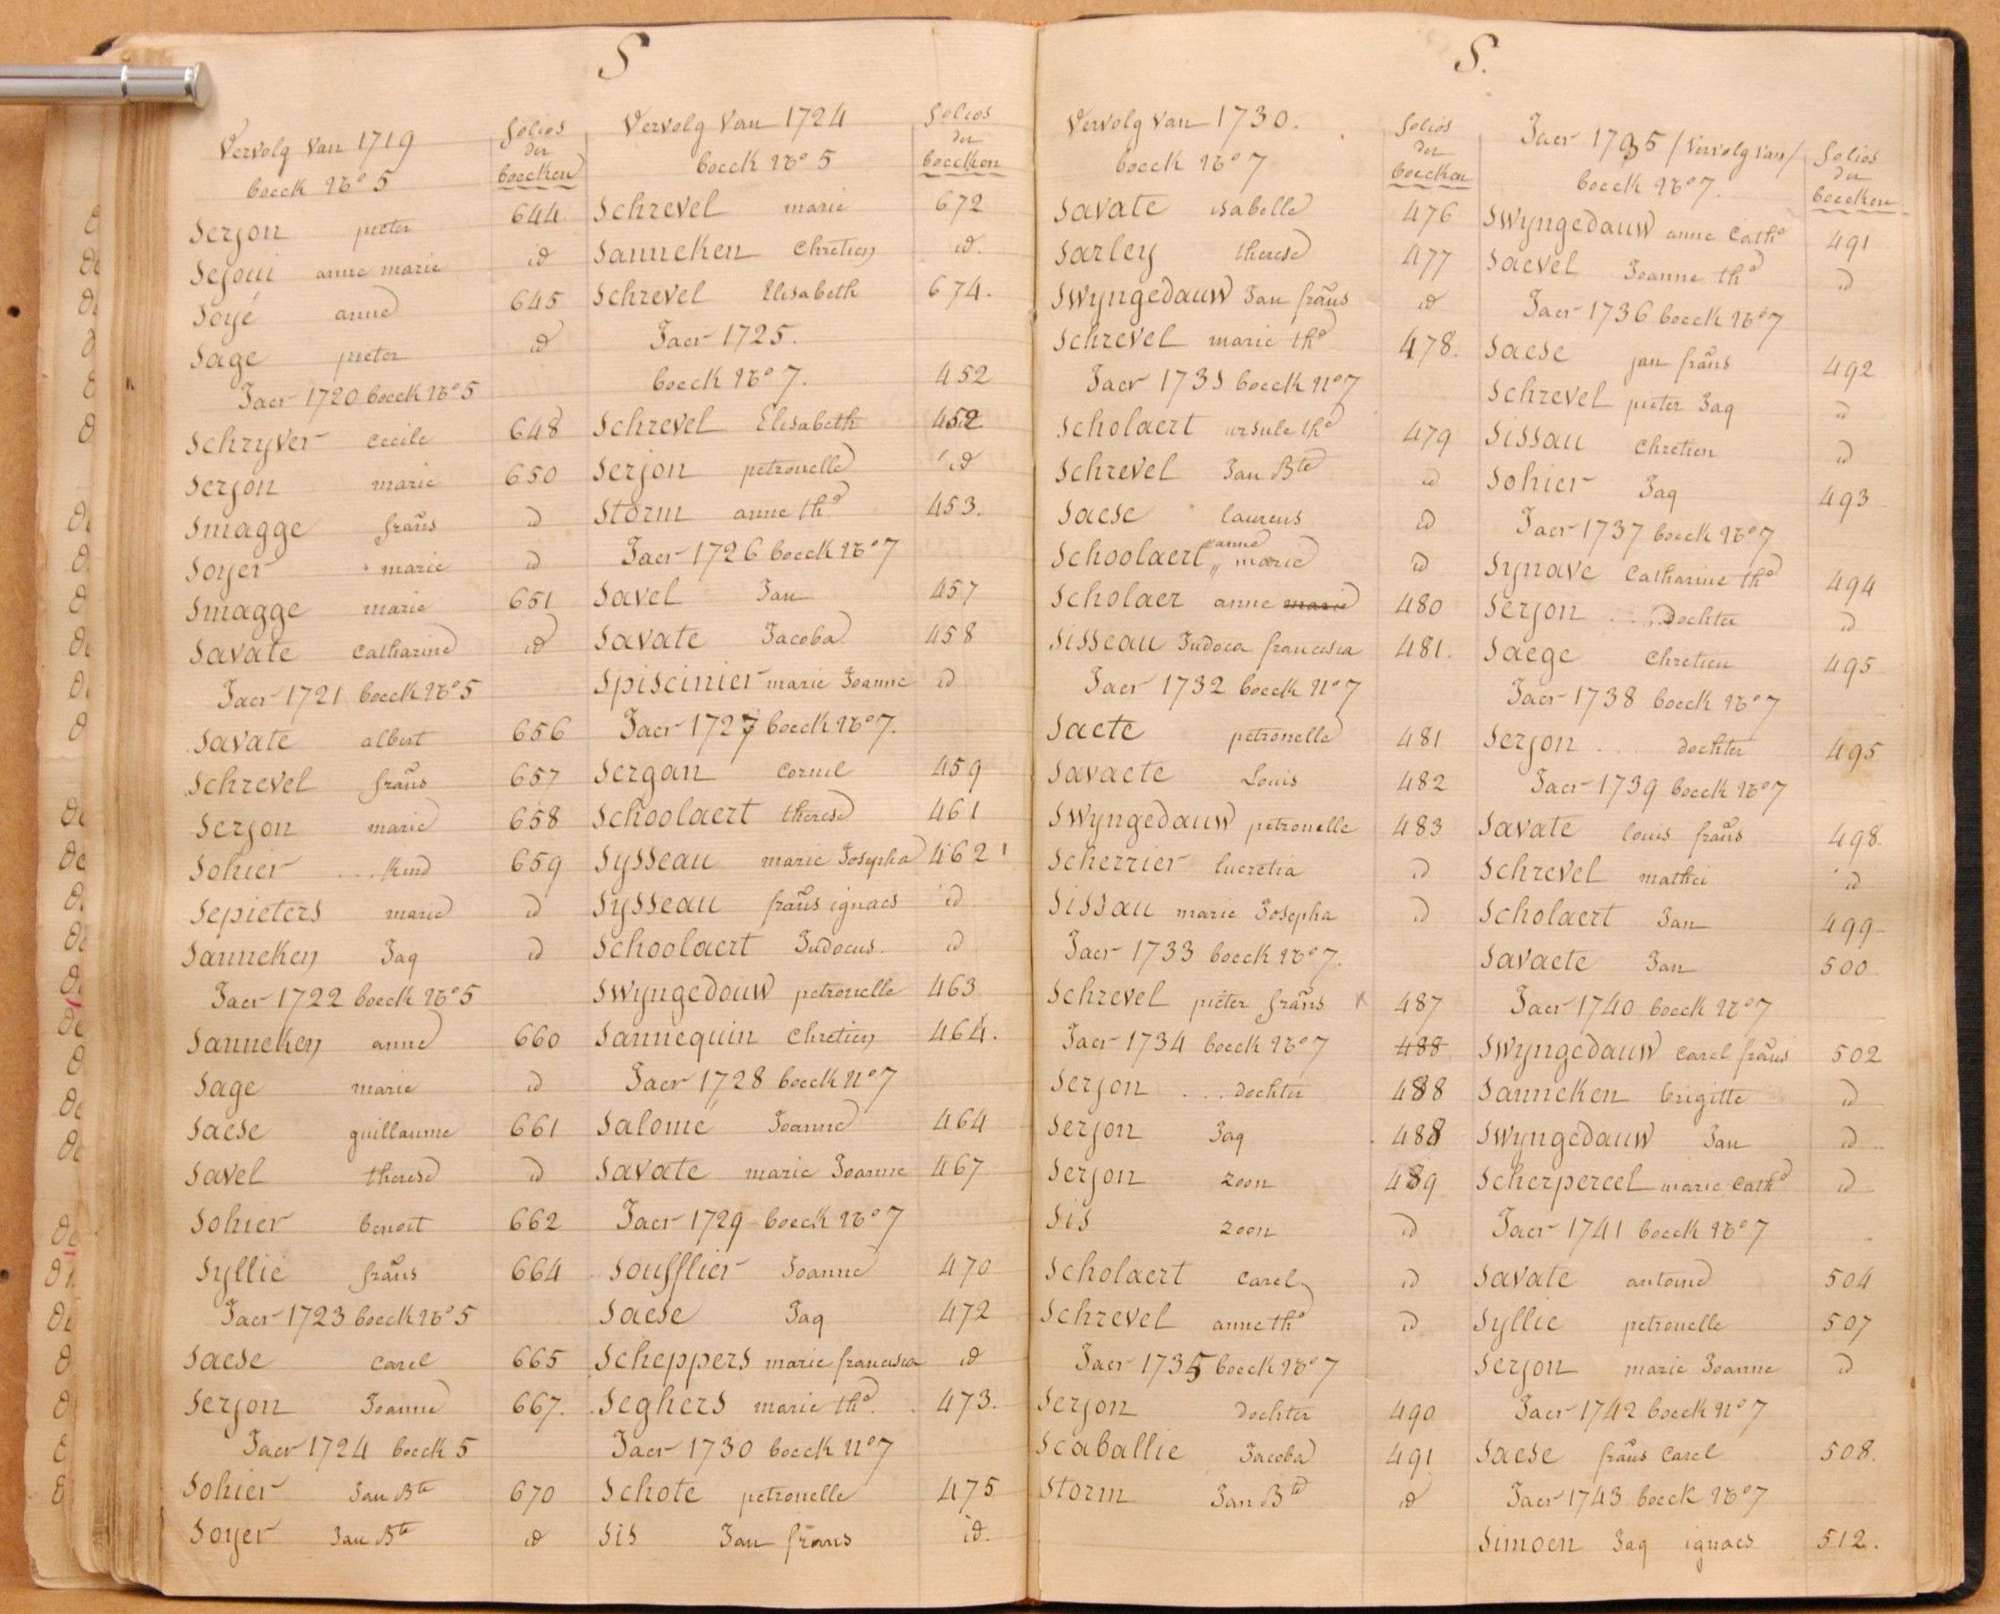 S
Vervolg van 1719 folios der boecken
boeck No 5
Serjon pieter 644
Sejoui anne marie id
Soyé anne 645
Sage pieter id
Jaer 1720 boeck No 5
Schryver cecile 648
Serjon marie 650
Smagge frans id
Soyer marie id
Smagge marie 651
Savate catharine id
Jaer 1721 boeck No 5
Savate albert 656
Schrevel frans 657
Serjon marie 658
Sohier ... kind 659
Sepieters marie id
Sanneken Jaq id
Jaer 1722 boeck No 5
Sanneken anne 660
Sage marie id
Saese guillaume 661
Savel therese id
Sohier benoit 662
Syllie frans 664
Jaer 1723 boeck No 5
Saese Carel 665
Serjon Joanne 667.
Jaer 1724 boeck 5
Sohier Jan Bte 670
Soyer Jan Bte id
Vervolg van 1724 folios der boecken
boeck No 5
Schrevel marie 672
Sanneken Chretien id.
Schrevel Elisabeth 674.
Jaer 1725.
boeck No 7. 452
Schrevel Elisabeth 452
Serjon petronelle id
Storm anne the 453.
Jaer 1726 boeck No 7
Savel Jan 457
Savate Jacoba 458
Spiscinier marie Joanne id
Jaer 1727 boeck No 7.
Sergan Cornil 459
Schoolaert therese 461
Sysseau marie Josepha 462
Sysseau frans ignaes id
Schoolaert Judocus. id
Swyngedouw petronelle 463
Sannequin Chretien 464.
Jaer 1728 boeck No 7
Salome Joanne 464
Savate marie Joanne 467
Jaer 1729 boeck No 7
Soufflier Joanne 470
Saese Jaq 472
Scheppers marie francisca id
Seghers marie the. 473.
Jaer 1730 boeck No 7
Schote petronelle 475
Sis Jan frans id.
S.
Vervolg van 1730. folios der boecken
boeck No 7
Savate isabelle 476
Sarley therese 477
Swyngedauw Jan frans id
Schrevel marie the 478.
Jaer 1731 boeck No 7
Scholaert ursule the 479
Schrevel Jan Bte id
Saese laurens id
Schoolaert anne „ marie id
Scholaer anne marie 480
Sisseau Judoca francisca 481.
Jaer 1732 boeck No 7
Saete petronelle 481
Savaete Louis 482
Swyngedauw petronelle 483
Scherrier lucretia id
Sissau marie Josepha id
Jaer 1733 boeck No 7.
Schrevel pieter frans 487
Jaer 1734 boeck No 7 488
Serjon ... dochter 488
Serjon Jaq 488
Serjon zoon 489
Sis zoon id
Scholaert Carel id
Schrevel anne the id
Jaer 1735 boeck No 7
Serjon dochter 490
Scaballie Jacoba 491
Storm Jan Bte id
Jaer 1735 / vervolg van / folios der boecken
boeck No 7.
Swyngedauw anne Cathe 491
Saevel Joanne the id
Jaer 1736 boeck No 7
Saese jan frans 492
Schrevel pieter Jaq id
Sissau Chretien id
Sohier Jaq 493
Jaer 1737 boeck No 7
Synave Catharine the 494
Serjon .... Dochter id
Saege Chretien 495
Jaer 1738 boeck No 7
Serjon .... dochter 495
Jaer 1739 boeck No 7
Savate louis frans 498
Schrevel mathei id
Scholaert Jan 499
Savaete Jan 500
Jaer 1740 boeck No 7
Swyngedauw Carel frans 502
Sanneken brigitte id
Swyngedauw Jan id
Scherpereel marie Cathe id
Jaer 1741 boeck No 7
Savate antoine 504
Syllie petronelle 507
Serjon marie Joanne id
Jaer 1742 boeck No 7
Saese frans Carel 508.
Jaer 1743 boeck No 7
Simoen Jaq ignaes 512.